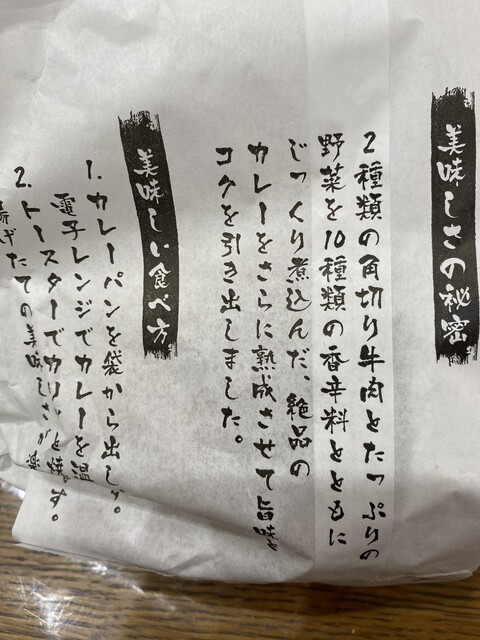 美味しさの秘密
2種類の角切り牛肉とたっぷりの
野菜を10種類の香辛料とともに
じっくり煮込んだ、絶品の
カレーをさらに熟成させて旨味と
コクを引き出しました。
美味しい食べ方
1. カレーパンを袋から出し、
電子レンジでカレーを温
2. トースターでカリッと焼
たての美味しさが楽